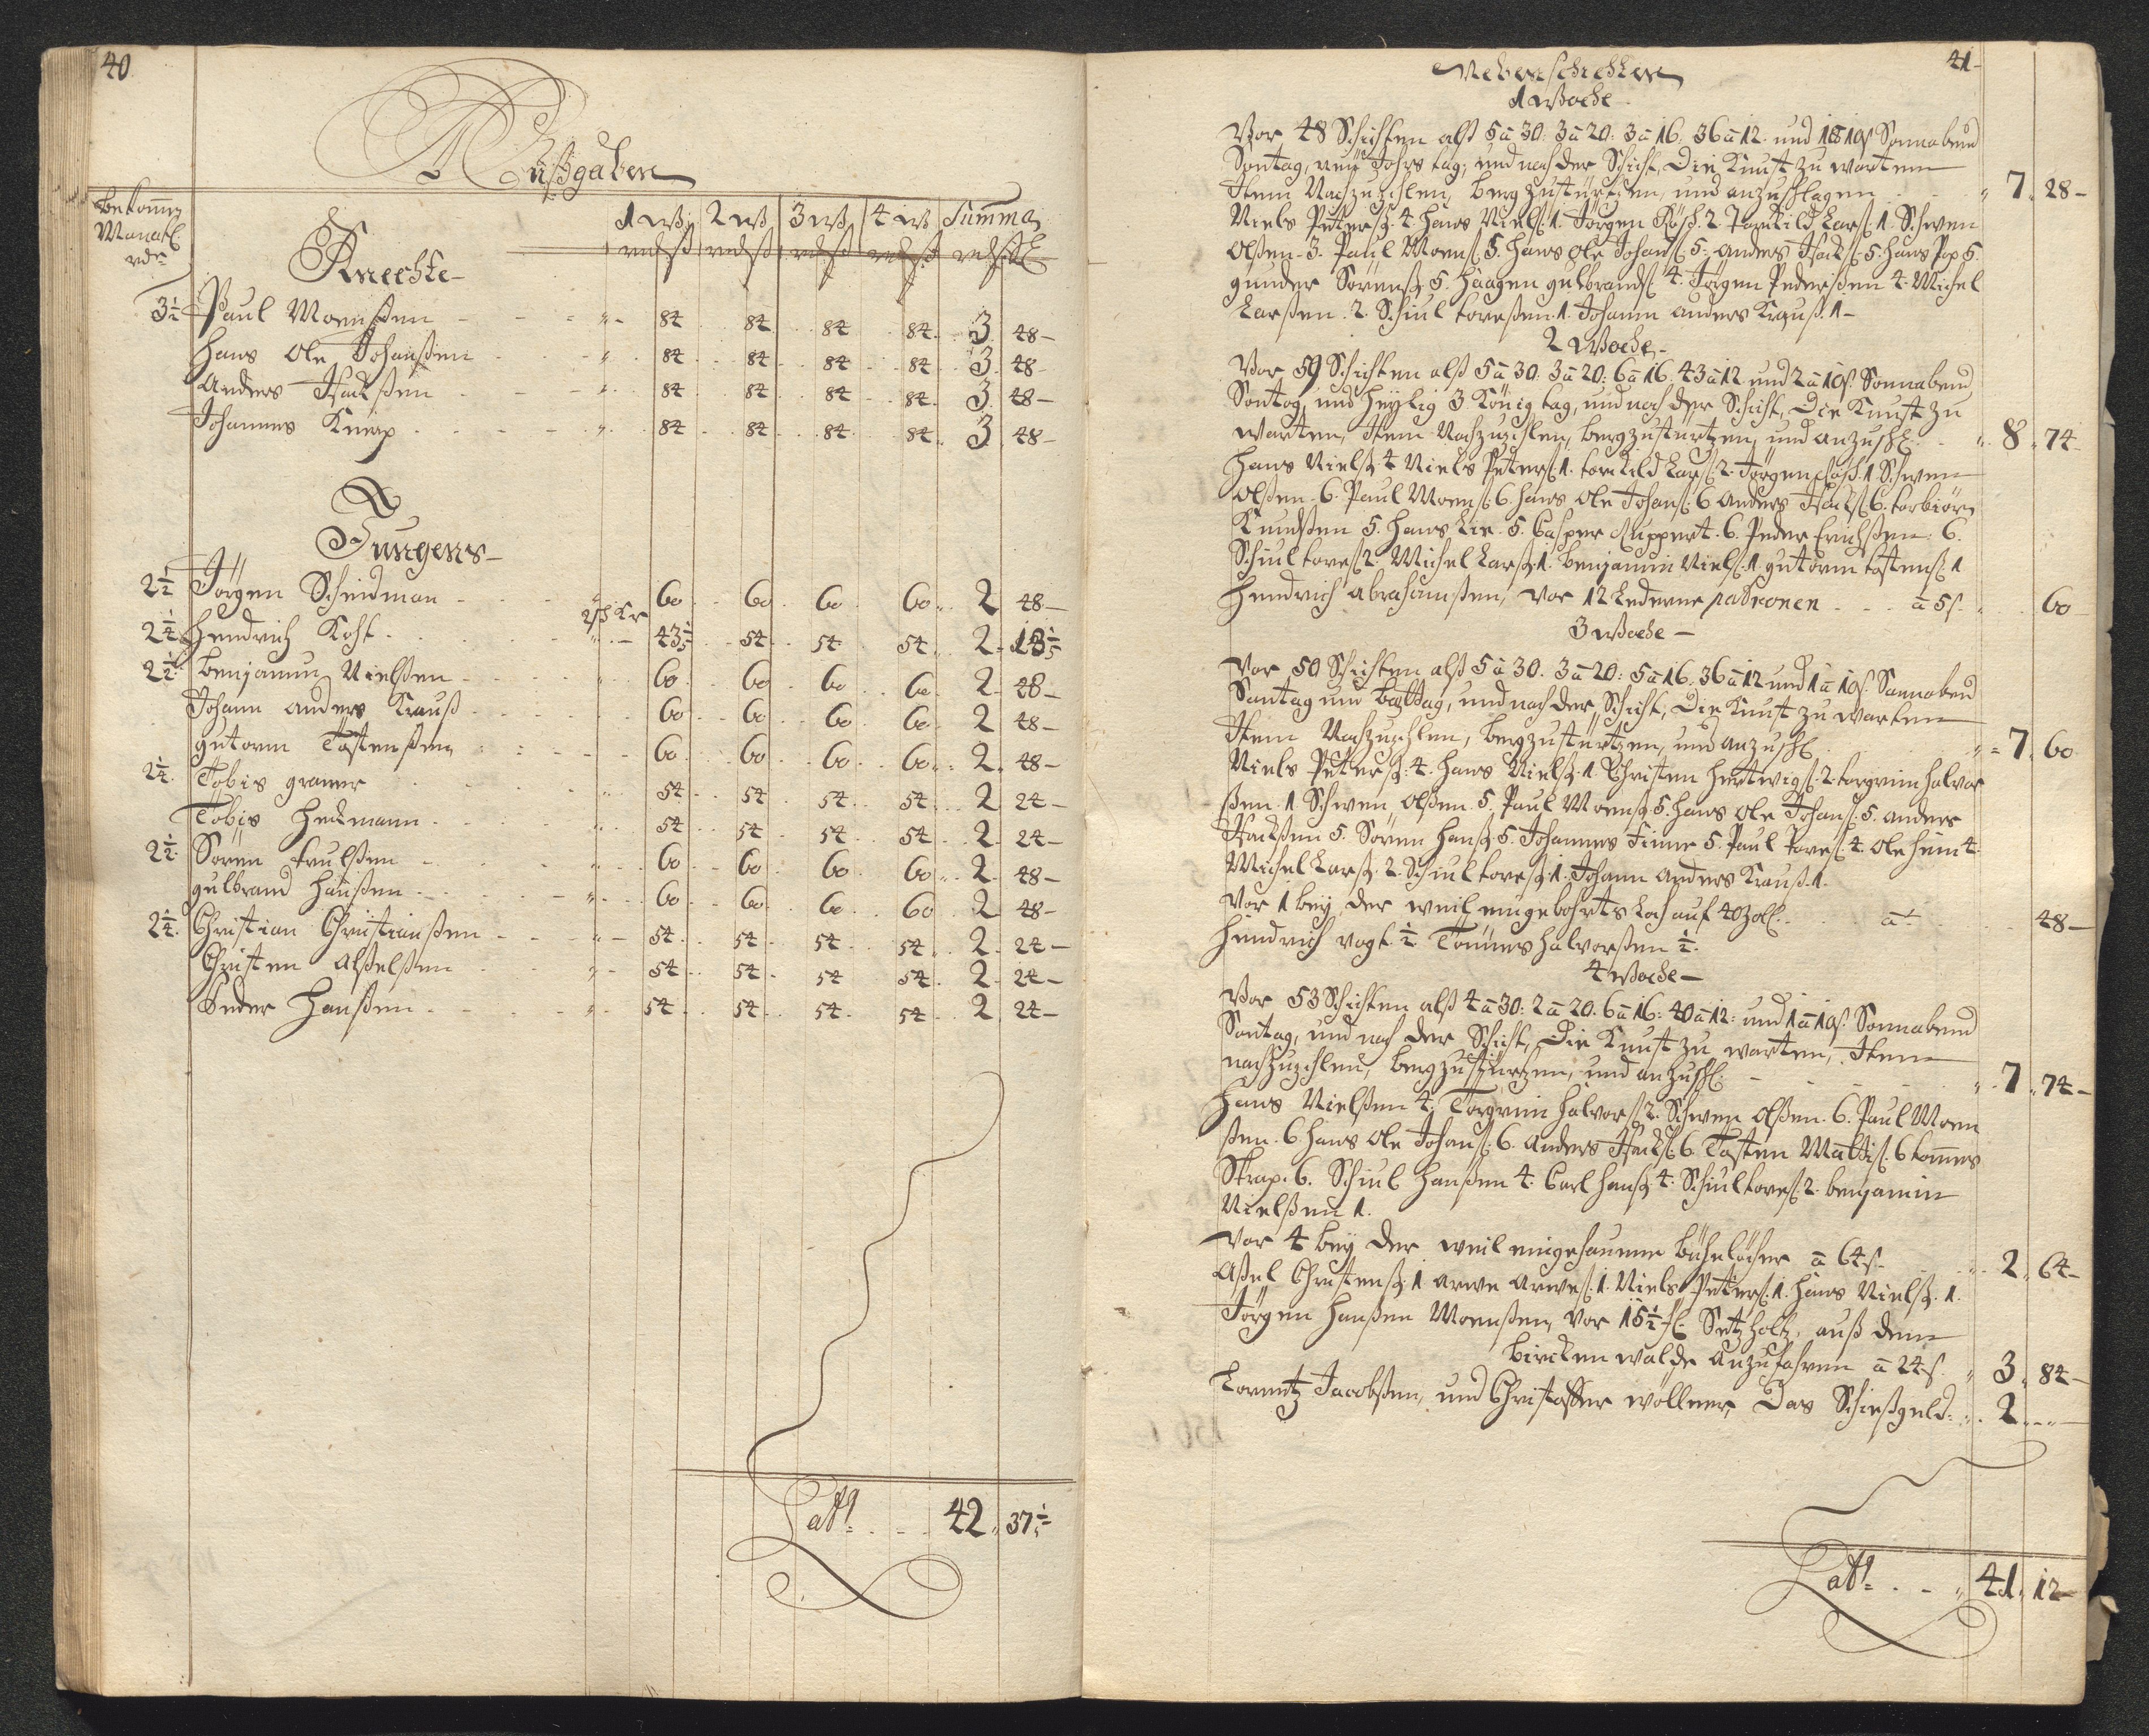 40
Außgaben
Bekomen
Monatl
rdr
1 wß 2 wß 3 wß 4 wß Summa
Knechte
3½ Paul Moenßen - - - " - 84 84 84 84 3 48 -
Hans Ole Johanßen " 84 84 84 84 3 48 -
Anders Isackßen " 84 84 84 84 3 48 -
Johannes Knap " 84 84 84 84 3 48 -
Jungens
2½ Jörgen Scheidman " 60 60 60 60 2 48 -
2¼ Hendrich Koht " 43⅕ 54 54 54 2 13⅕
2½ Benjamin Nielßen " 60 60 60 60 2 48 -
Johann Anders Krauß 60 60 60 60 2 48 -
Gutorm Tostenßen 60 60 60 60 2 48 -
2¼ Tobis Graner " 54 54 54 54 2 24 -
Tobis Heckmann " 54 54 54 54 2 24 -
2½ Sören Trulßen " 60 60 60 60 2 48 -
Gulbrand Hanßen " 60 60 60 60 2 48 -
2¼ Christian Christianßen " 54 54 54 54 2 24 -
Christen Alßelßen " 54 54 54 54 2 24 -
Peder Hanßen " 54 54 54 54 2 24 -
Latt: 42 37⅕
41
Nebenschichten
1 Woche
Vor 48 Schichten alß 5 a 30: 3 a 20: 3 a 16. 36 a 12 und 1 a 10 ß Sonnabend
Sontag, neü Jahrs tag, und nach der Schicht, Die Kunst zu warten
Item Nachzuzehlen, Berg zustürtzen, und anzuschlagen " 7 28 -
Niels Peterß: 4. Hans Nielß: 1. Jörgen 2. Torkild Larß: 1. Schwen
Olßen 3. Paul Moenß: 5. Hans Ole Johanß: 5. Anders Isackß: 5. Hans Pop 5.
Gunder Sörenß: 5. Haagen Gulbrandß: 4. Jörgen Pederßen 4. Michel
Larßen. 2. Schiul Toreßen 1. Johann Anders Krauß. 1 -
2 Woche -
Vor 59 Schichten alß 5 a 30: 3 a 20: 6 a 16. 43 a 12 und 2 a 10 ß Sonnabend
Sontag, und Heylig 3 König tag, und nach der Schicht, Die Kunst zu
warten, Item Nachzuzehlen, Berg zustürtzen, und anzuschl: " 8 74 -
Hans Nielß 4 Niels Peterß: 1. Torkild Larß: 2. Jörgen 1 Schwen
Olßen 6. Paul Moenß: 6. Hans Ole Johanß: 6 Anders Isackß 6. Torbiörn
Knudßen 5. Hans Lie. 5. Casper Ruppert. 6. Peder Erichßen: 6.
Schiul Toreß 2. Michel Larß: 1. Benjamin Nielß: 1. Gutorm Tostenß: 1
Hendrich Abrahamßen, vor 12 Lederne patronen a 5 ß " 60
3 Woche -
Vor 50 Schichten alß 5 a 30. 3 a 20: 5 a 16. 36 a 12 und 1 a 10 ß Sonnabend
Sontag und Bettag, und nach der Schicht, Die Kunst zu warten
Item Nachzuzehlen, Berg zustürtzen, und anzuschl: " 7 60
Niels Peterß: 4. Hans Nielß: 1. Christen Hertwigß: 2. Torgrim Halvor
ßen. 1 Schwen Olßen. 5. Paul Moenß: 5. Hans Ole Johanß: 5. Anders
Isackßen 5. Sören Hanß 5. Johannes Finne 5. Paul Toreß: 4. Ole Heim 4.
Michel Larß: 2. Schiul Toreß: 1. Johann Anders Krauß. 1.
Vor 1 bey der weil eingebohrtes Loch auf 40 Zoll a 48 -
Hendrich Vogt ½ Tönnes Halvorßen ½.
4 Woche -
Vor 53 Schichten alß 4 a 30: 2 a 20. 6 a 16: 40 a 12: und 1 a 10 ß Sonnabend
Sontag, und nach der Schicht, Die Kunst zu warten, Item
nachzuzehlen, Berg zustürtzen, und anzuschl: " 7 74 -
Hans Nielßen 4. Torgrim Halvorß 2. Schwen Olßen. 6. Paul Moen
ßen. 6 Hans Ole Johanß: 6. Anders Isackß: 6. Tosten Mattiß: 6 Tommes
Skrap. 6. Schiul Hanßen 4. Carl Hanß: 4. Schiul Toreß: 2. Benjamin
Nielßen 1.
Vor 4 bey der weil eingehauene Bühnlöcher a 64 ß " 2 64 -
Aßel Christenß: 1 Arwe Arweß: 1. Niels Peterß: 1. Hans Nielß. 1.
Jörgen Hanßen Moenßen, vor 15½ Setzholtz, auß dem
Bircken walde anzufahren a 24 ß " 3 84 -
Lorentz Jacobßen, und Christoffer Wöllner, Das Schießgeld " 2 " -
Latt: " 41 12 -